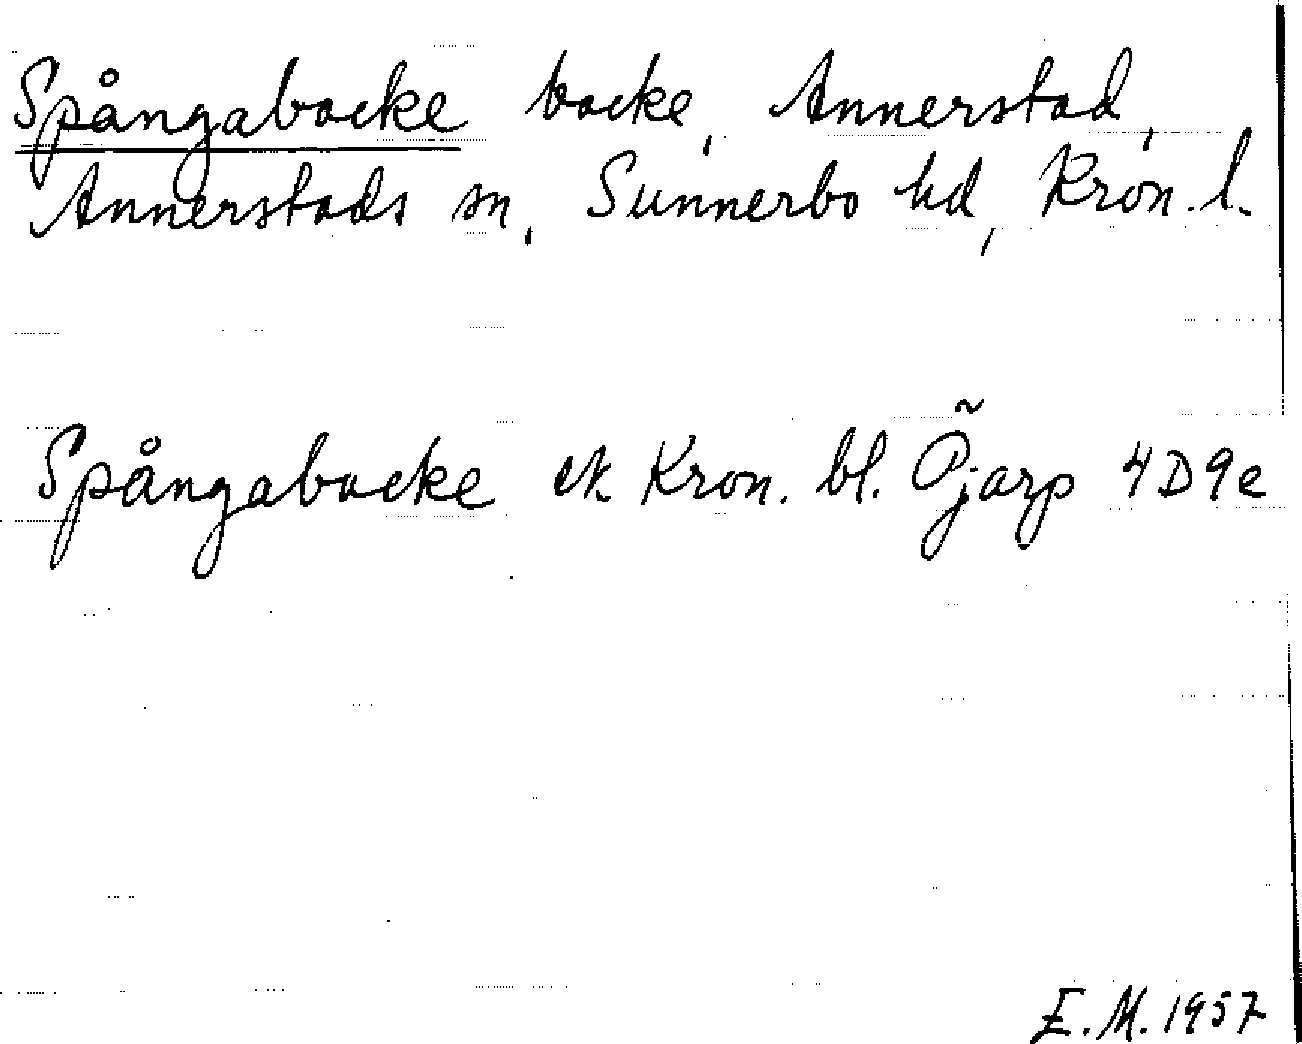 Spångabacke backe, Annerstad,
Annerstads sn, Sunnerbo hd, Kron. l.
Spångabacke ek Kron. bl. Öjarp 4D9e
E.M. 1957